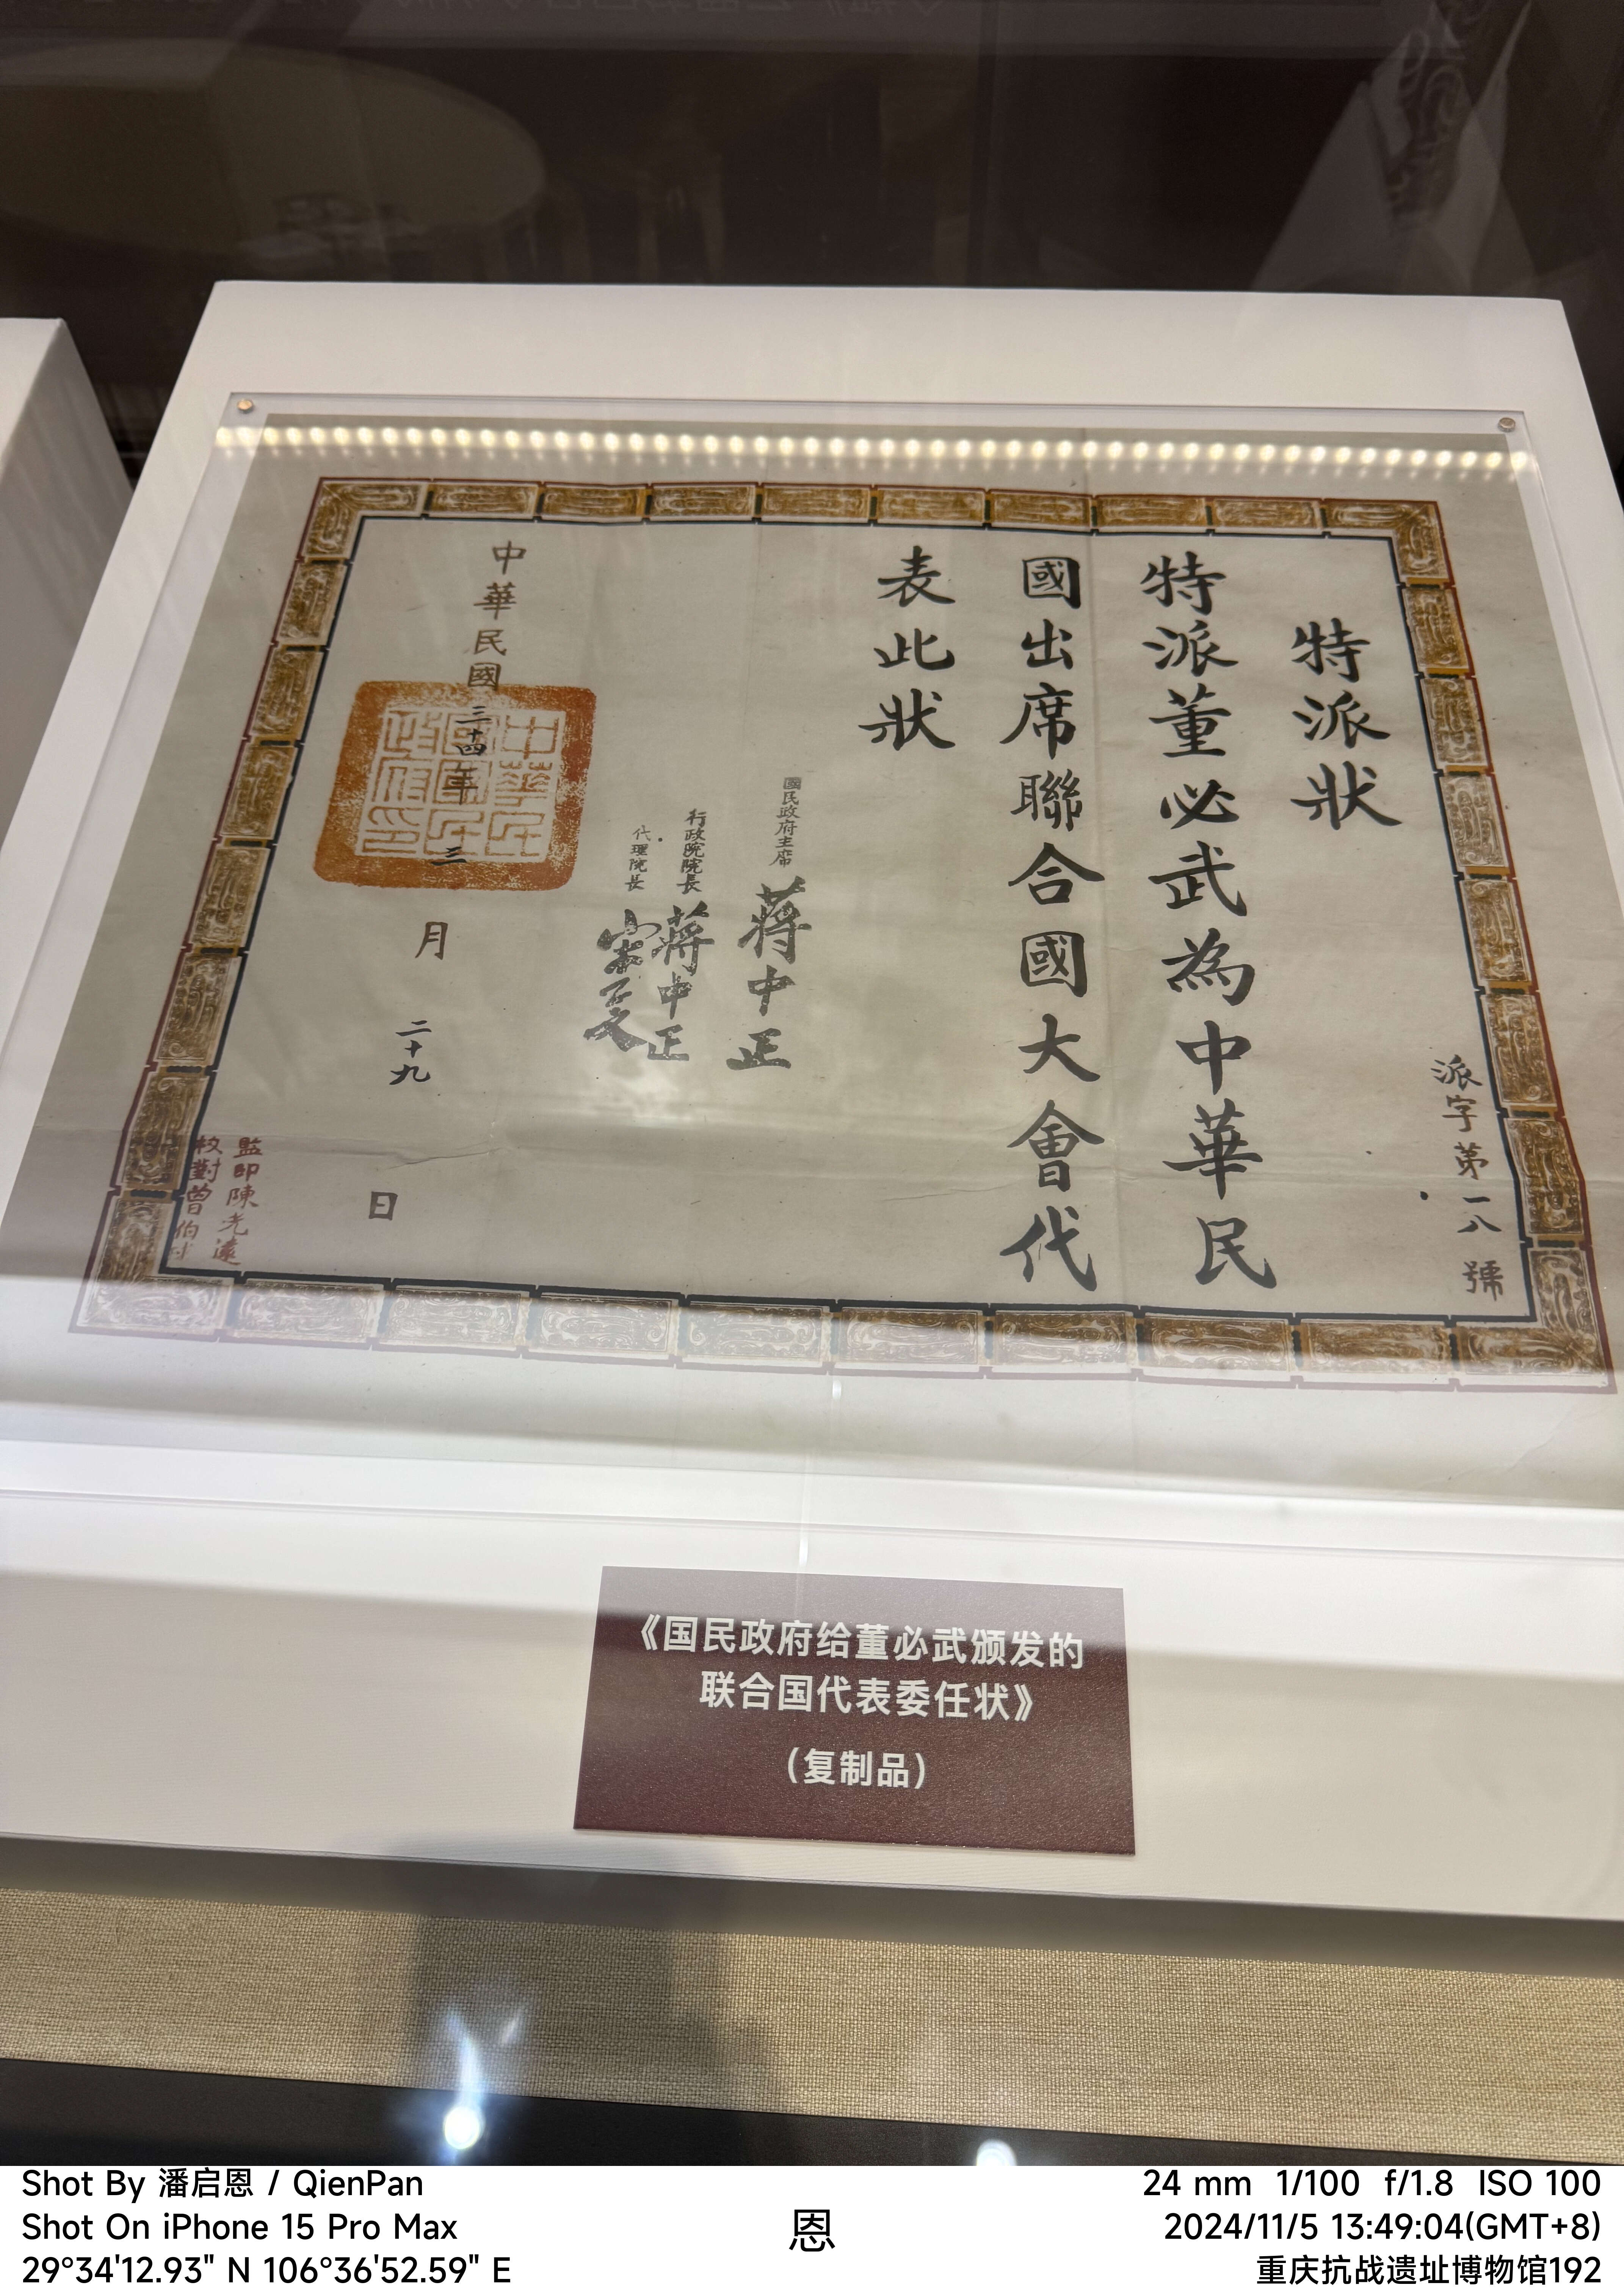 派字第一八號
特派狀
特派董必武為中華民
國出席聯合國大會代
表此狀
國民政府主席 蔣中正
行政院院長 蔣中正
代理院長 宋子文
中華民國三十四年三月二十九日
中華民國國民政府印
監印陳光遠
校對曾伯
《国民政府给董必武颁发的
联合国代表委任状》
（复制品）
Shot By 潘启恩 / QienPan
Shot On iPhone 15 Pro Max
29°34'12.93" N 106°36'52.59" E
恩
24 mm 1/100 f/1.8 ISO 100
2024/11/5 13:49:04(GMT+8)
重庆抗战遗址博物馆192